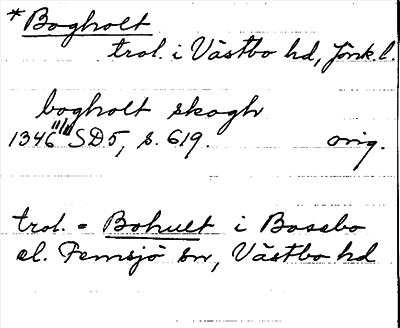 *Bogholt
trol. i Västbo hd, Jönk. l.
bogholt skogh
1346 11/11 SD5, s. 619. orig.
trol. = Bohult i Bosebo
el. Femsjö sn, Västbo hd